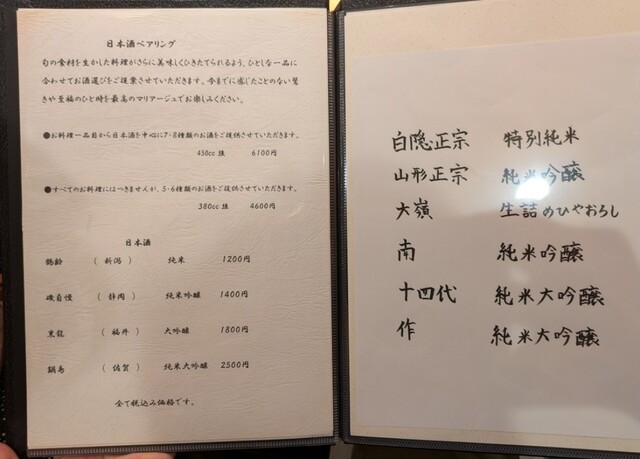 日本酒ペアリング
旬の食材を生かした料理がさらに美味しくひきたてられるよう、ひとしな一品に
合わせてお酒選びをご提案させていただきます。今までに感じたことのない驚
きや至福のひと時を最高のマリアージュでお楽しみください。
●お料理一品目から日本酒を中心に7・8種類のお酒をご提供させていただきます。
450cc 強 6100円
●すべてのお料理にはつきませんが、5・6種類のお酒をご提供させていただきます。
380cc 強 4600円
日本酒
鶴齢 （ 新潟 ） 純米 1200円
磯自慢 （ 静岡 ） 純米吟醸 1400円
黒龍 （ 福井 ） 大吟醸 1800円
鍋島 （ 佐賀 ） 純米大吟醸 2500円
全て税込み価格です。
白隠正宗 特別純米
山形正宗 純米吟醸
大嶺 生詰めひやおろし
南 純米吟醸
十四代 純米大吟醸
作 純米大吟醸